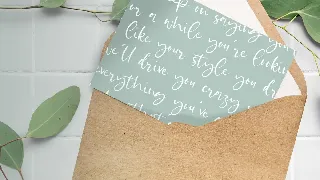 up on saying you
or a while you're lookin
like your style you dr
we'll drive you crazy
everything you've